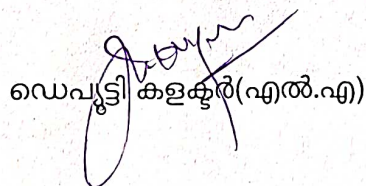 ഡെപ്യൂട്ടി കളക്ടർ(എൽ.എ)